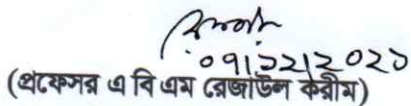 ০৭|১২|২০২১
(প্রফেসর এ বি এম রেজাউল করীম)